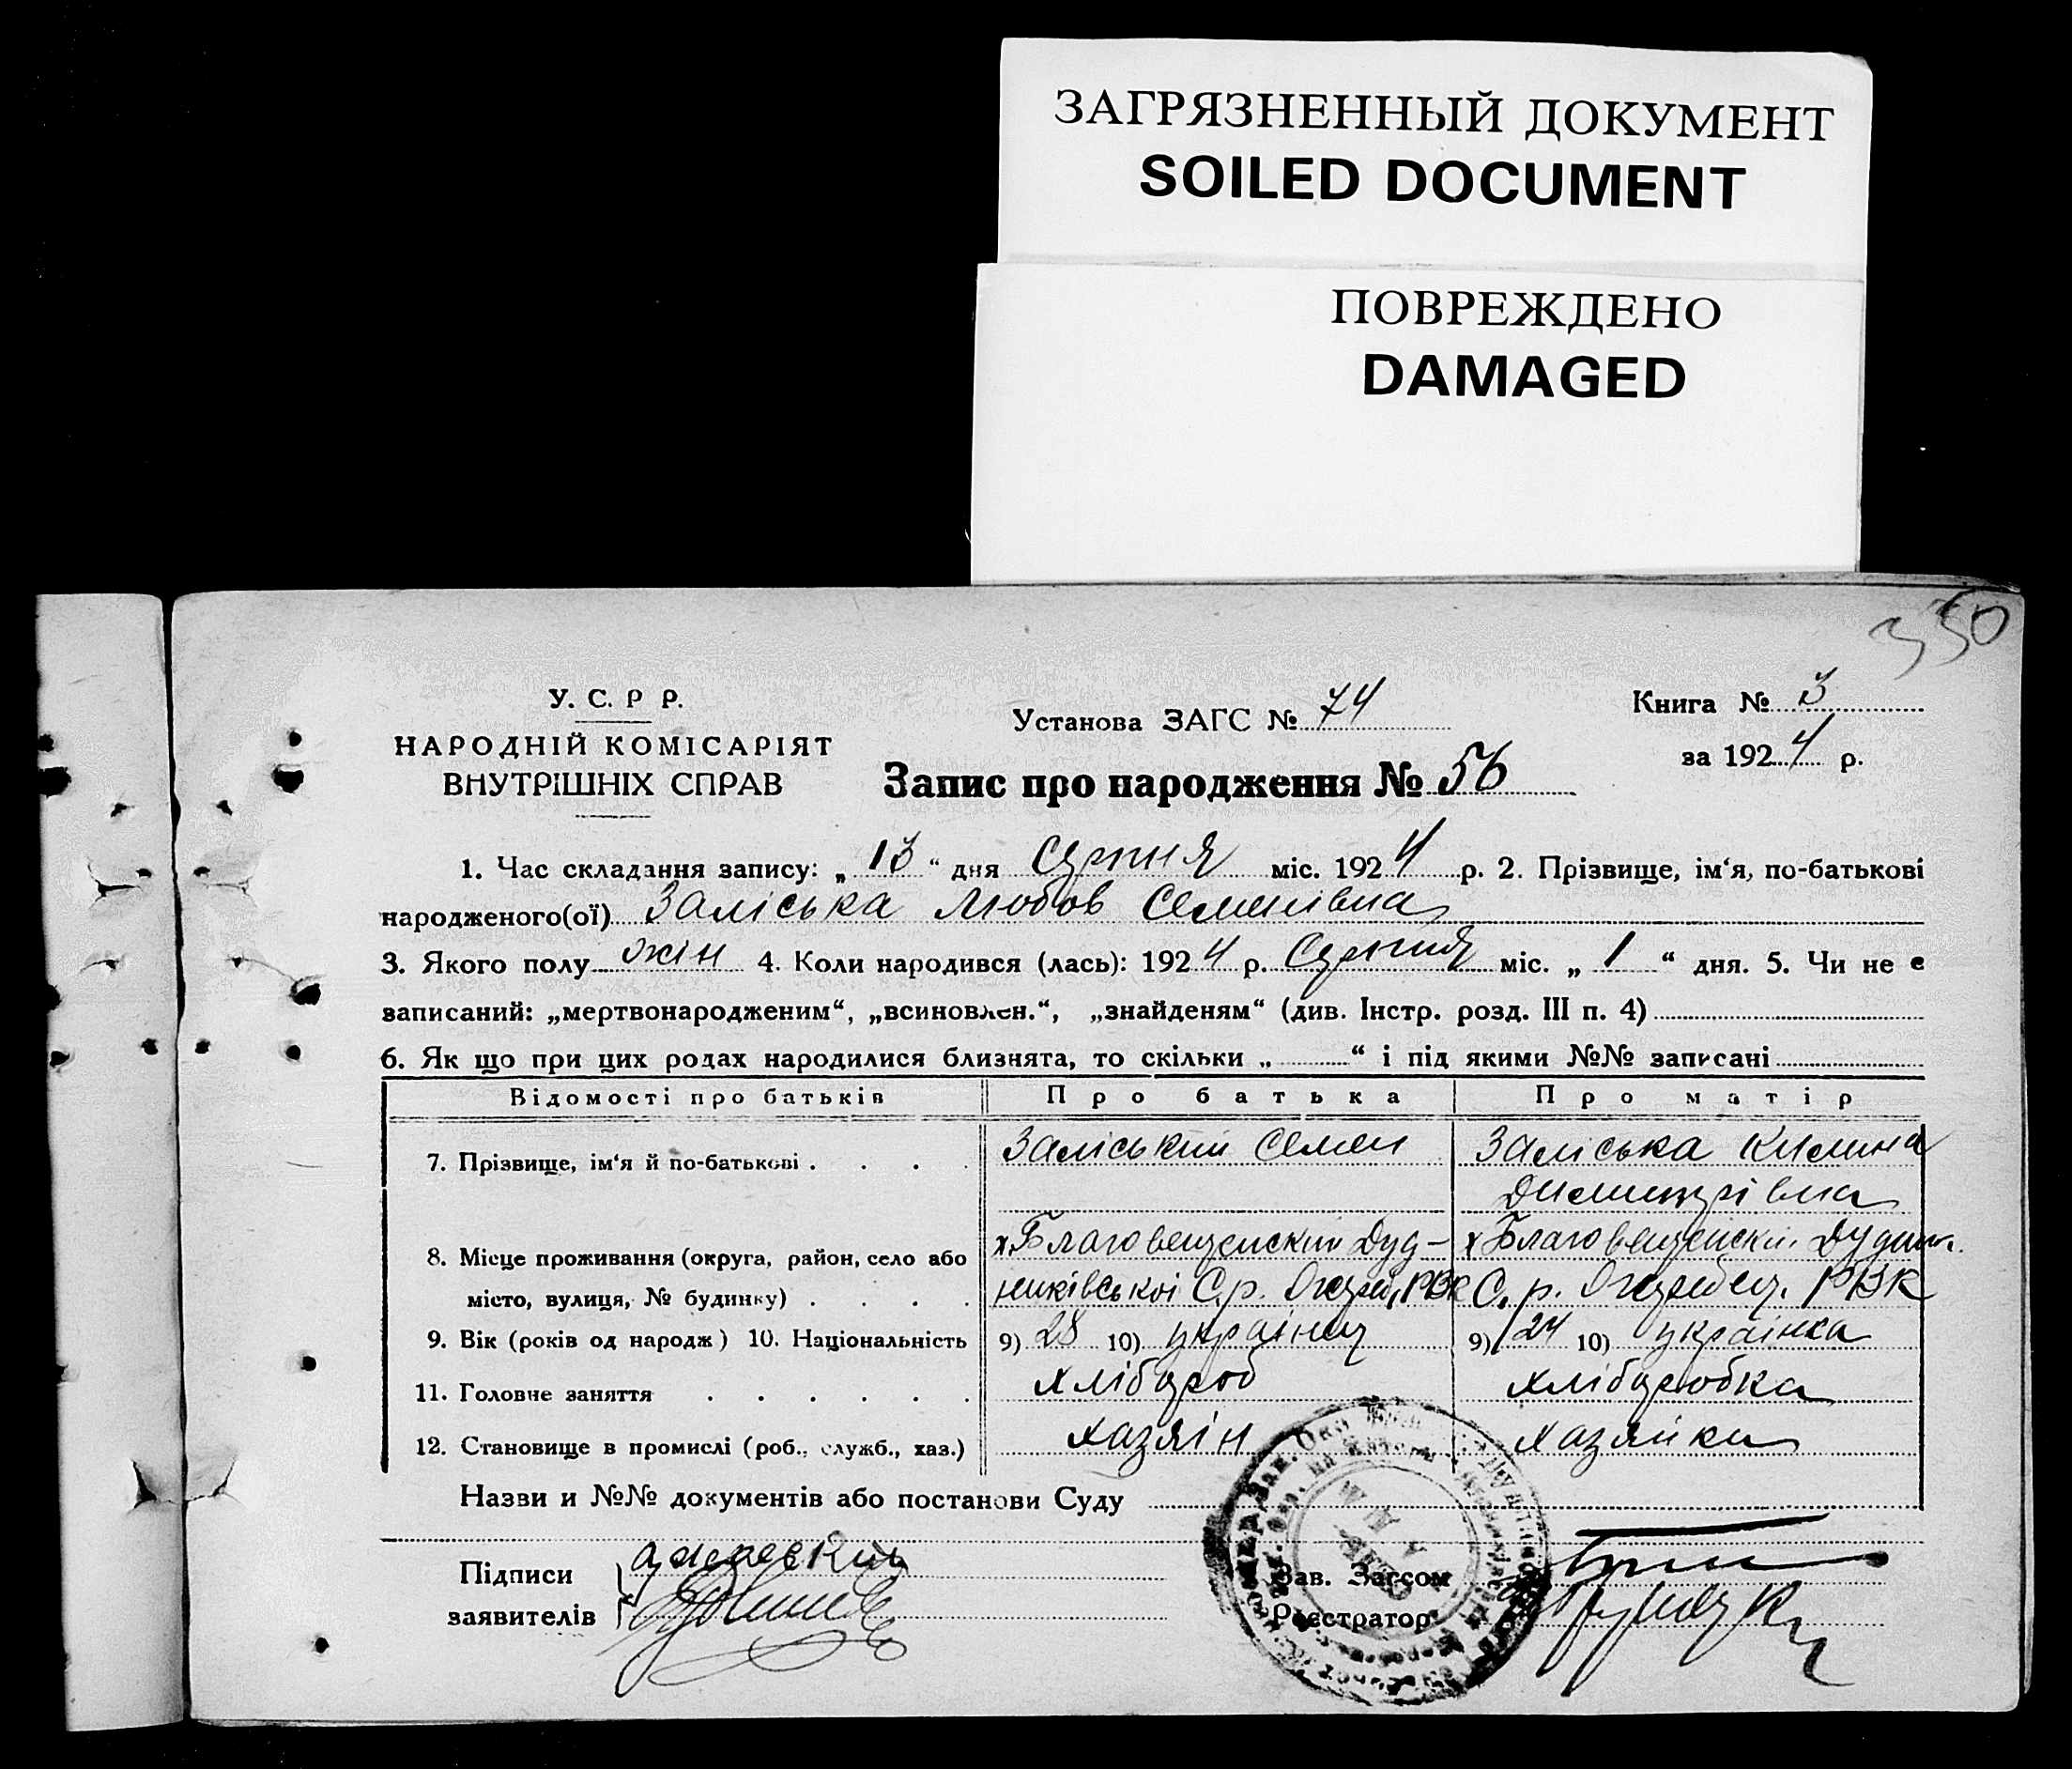 ЗАГРЯЗНЕННЫЙ ДОКУМЕНТ
SOILED DOCUMENT
ПОВРЕЖДЕНО
DAMAGED
350
У. С. Р Р.
НАРОДНІЙ КОМІСАРІЯТ
ВНУТРІШНІХ СПРАВ
Установа ЗАГС № 74
Книга № 3
за 1924 р.
Запис про народження № 56
1. Час складання запису: „ 13 “ дня Серпня міс. 1924 р. 2. Прізвище, ім‘я, по-батькові
народженого(ої) Заліська Любов Семенівна
3. Якого полу жін 4. Коли народився (лась): 1924 р. Серпня міс. „ 1 “ дня. 5. Чи не є
записаний: „мертвонародженим“, „всиновлен.“, „знайденям“ (див. Інстр. розд. III п. 4)
6. Як що при цих родах народилися близнята, то скільки „ “ і під якими №№ записані
Відомості про батьків Про батька Про матір
7. Прізвище, ім‘я й по-батькові . . . . Заліський Семен Заліська Килина
Димитрівна
8. Місце проживання (округа, район, село або х. Благовещенский Дуд- х Благовещенский
місто, вулиця, № будинку) . . . . никівської С.р. РВК С. р. РВК
9. Вік (років од народж ) 10. Національність 9) 28 10) українец 9) 24 10) українка
11. Головне заняття . . . . . . хлібороб хліборобка
12. Становище в промислі (роб., служб., хаз.) хазяін хазяйка
Назви и №№ документів або постанови Суду
Підписи
заявителів
Зав. Загсом
Реєстратор